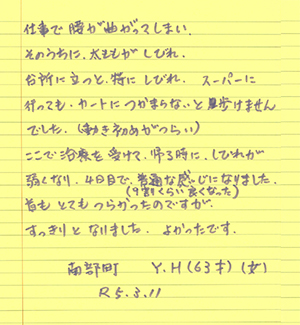 仕事で腰が曲がってしまい、
そのうちに、太ももがしびれ、
台所に立つと、特にしびれ、スーパーに
行っても、カートにつかまらないと歩けません
でした。(動き初めがつらい)
ここで治療を受けて、帰る時に、しびれが
弱くなり、4日目で、普通な感じになりました。
(9割くらい良くなった)
首もとてもつらかったのですが、
すっきりとなりました。よかったです。
南部町 Y.H(63才)(女)
R5.3.11